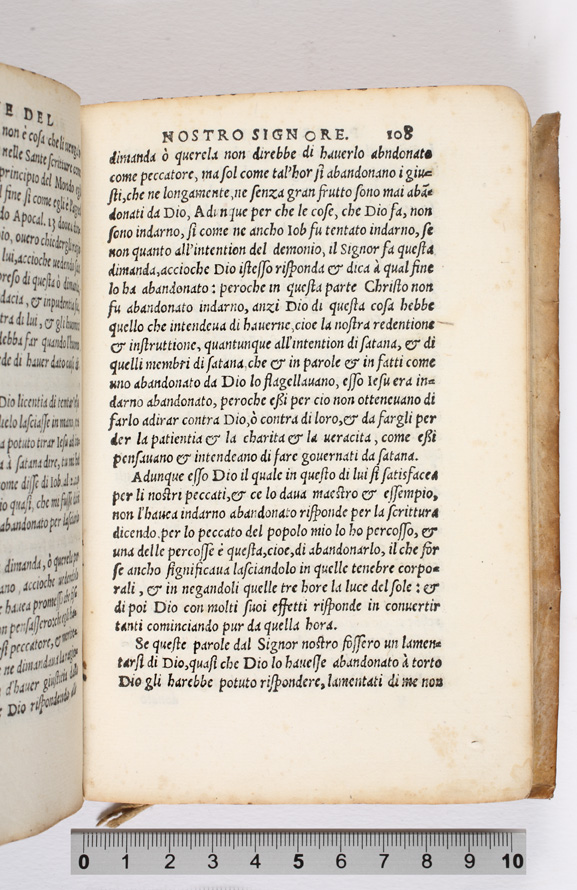 E DEL
non è cosa che li
nelle Sante scritture
principio del Mondo
l fine sì come egli è
do Apocal. 13
io, ouero chieder
lui, accioche
preso di questa ò
dacia, &
tra di lui, & gli
debba far quando
de di hauer dato
Dio licentia di tentar
lasciasse in mano,
a potuto tirar Iesu
a à satana dire,
come disse di Iob. al 2.
io quasi, che mi fusse
abandonato per lasciarlo
dimanda, ò querela
ano, accioche
e hauea promesso,
on pensassero
si peccatore, &
ne dimandaua
d'hauer giustitia
r Dio rispondendo
NOSTRO SIGNORE. 108
dimanda ò querela non direbbe di hauerlo abndonato
come peccatore, ma sol come tal'hor si abandonano i giu=
sti, che ne longamente, ne senza gran frutto sono mai abã=
donati da Dio, Adunque per che le cose, che Dio fa, non
sono indarno, sì come ne ancho Iob fu tentato indarno, se
non quanto all'intention del demonio, il Signor fa questa
dimanda, accioche Dio istesso risponda & dica à qual fine
lo ha abandonato : peroche in questa parte Christo non
fu abandonato indarno, anzi Dio di questa cosa hebbe
quello che intendeua di hauerne, cioe la nostra redentione
& instruttione, quantunque all'intention di satana, & di
quelli membri di satana, che & in parole & in fatti come
uno abandonato da Dio lo flagellauano, esso Iesu era in=
darno abandonato, peroche essi per cio non otteneuano di
farlo adirar contra Dio, ò contra di loro, & da fargli per
der la patientia & la charita & la veracita, come essi
pensauano & intendeano di fare gouernati da satana.
Adunque esso Dio il quale in questo di lui si satisfacea
per li nostri peccati, & ce lo daua maestro & essempio,
non l'hauea indarno abandonato risponde per la scrittura
dicendo. per lo peccato del popolo mio lo ho percosso, &
una delle percosse è questa, cioe, di abandonarlo, il che for
se ancho significaua lasciandolo in quelle tenebre corpo=
rali, & in negandoli quelle tre hore la luce del sole : &
di poi Dio con molti suoi effetti risponde in conuertir
tanti cominciando pur da quella hora.
Se queste parole dal Signor nostro fossero un lamen=
tarsi di Dio, quasi che Dio lo hauesse abandonato à torto
Dio gli harebbe potuto rispondere, lamentati di me non
0 1 2 3 4 5 6 7 8 9 10